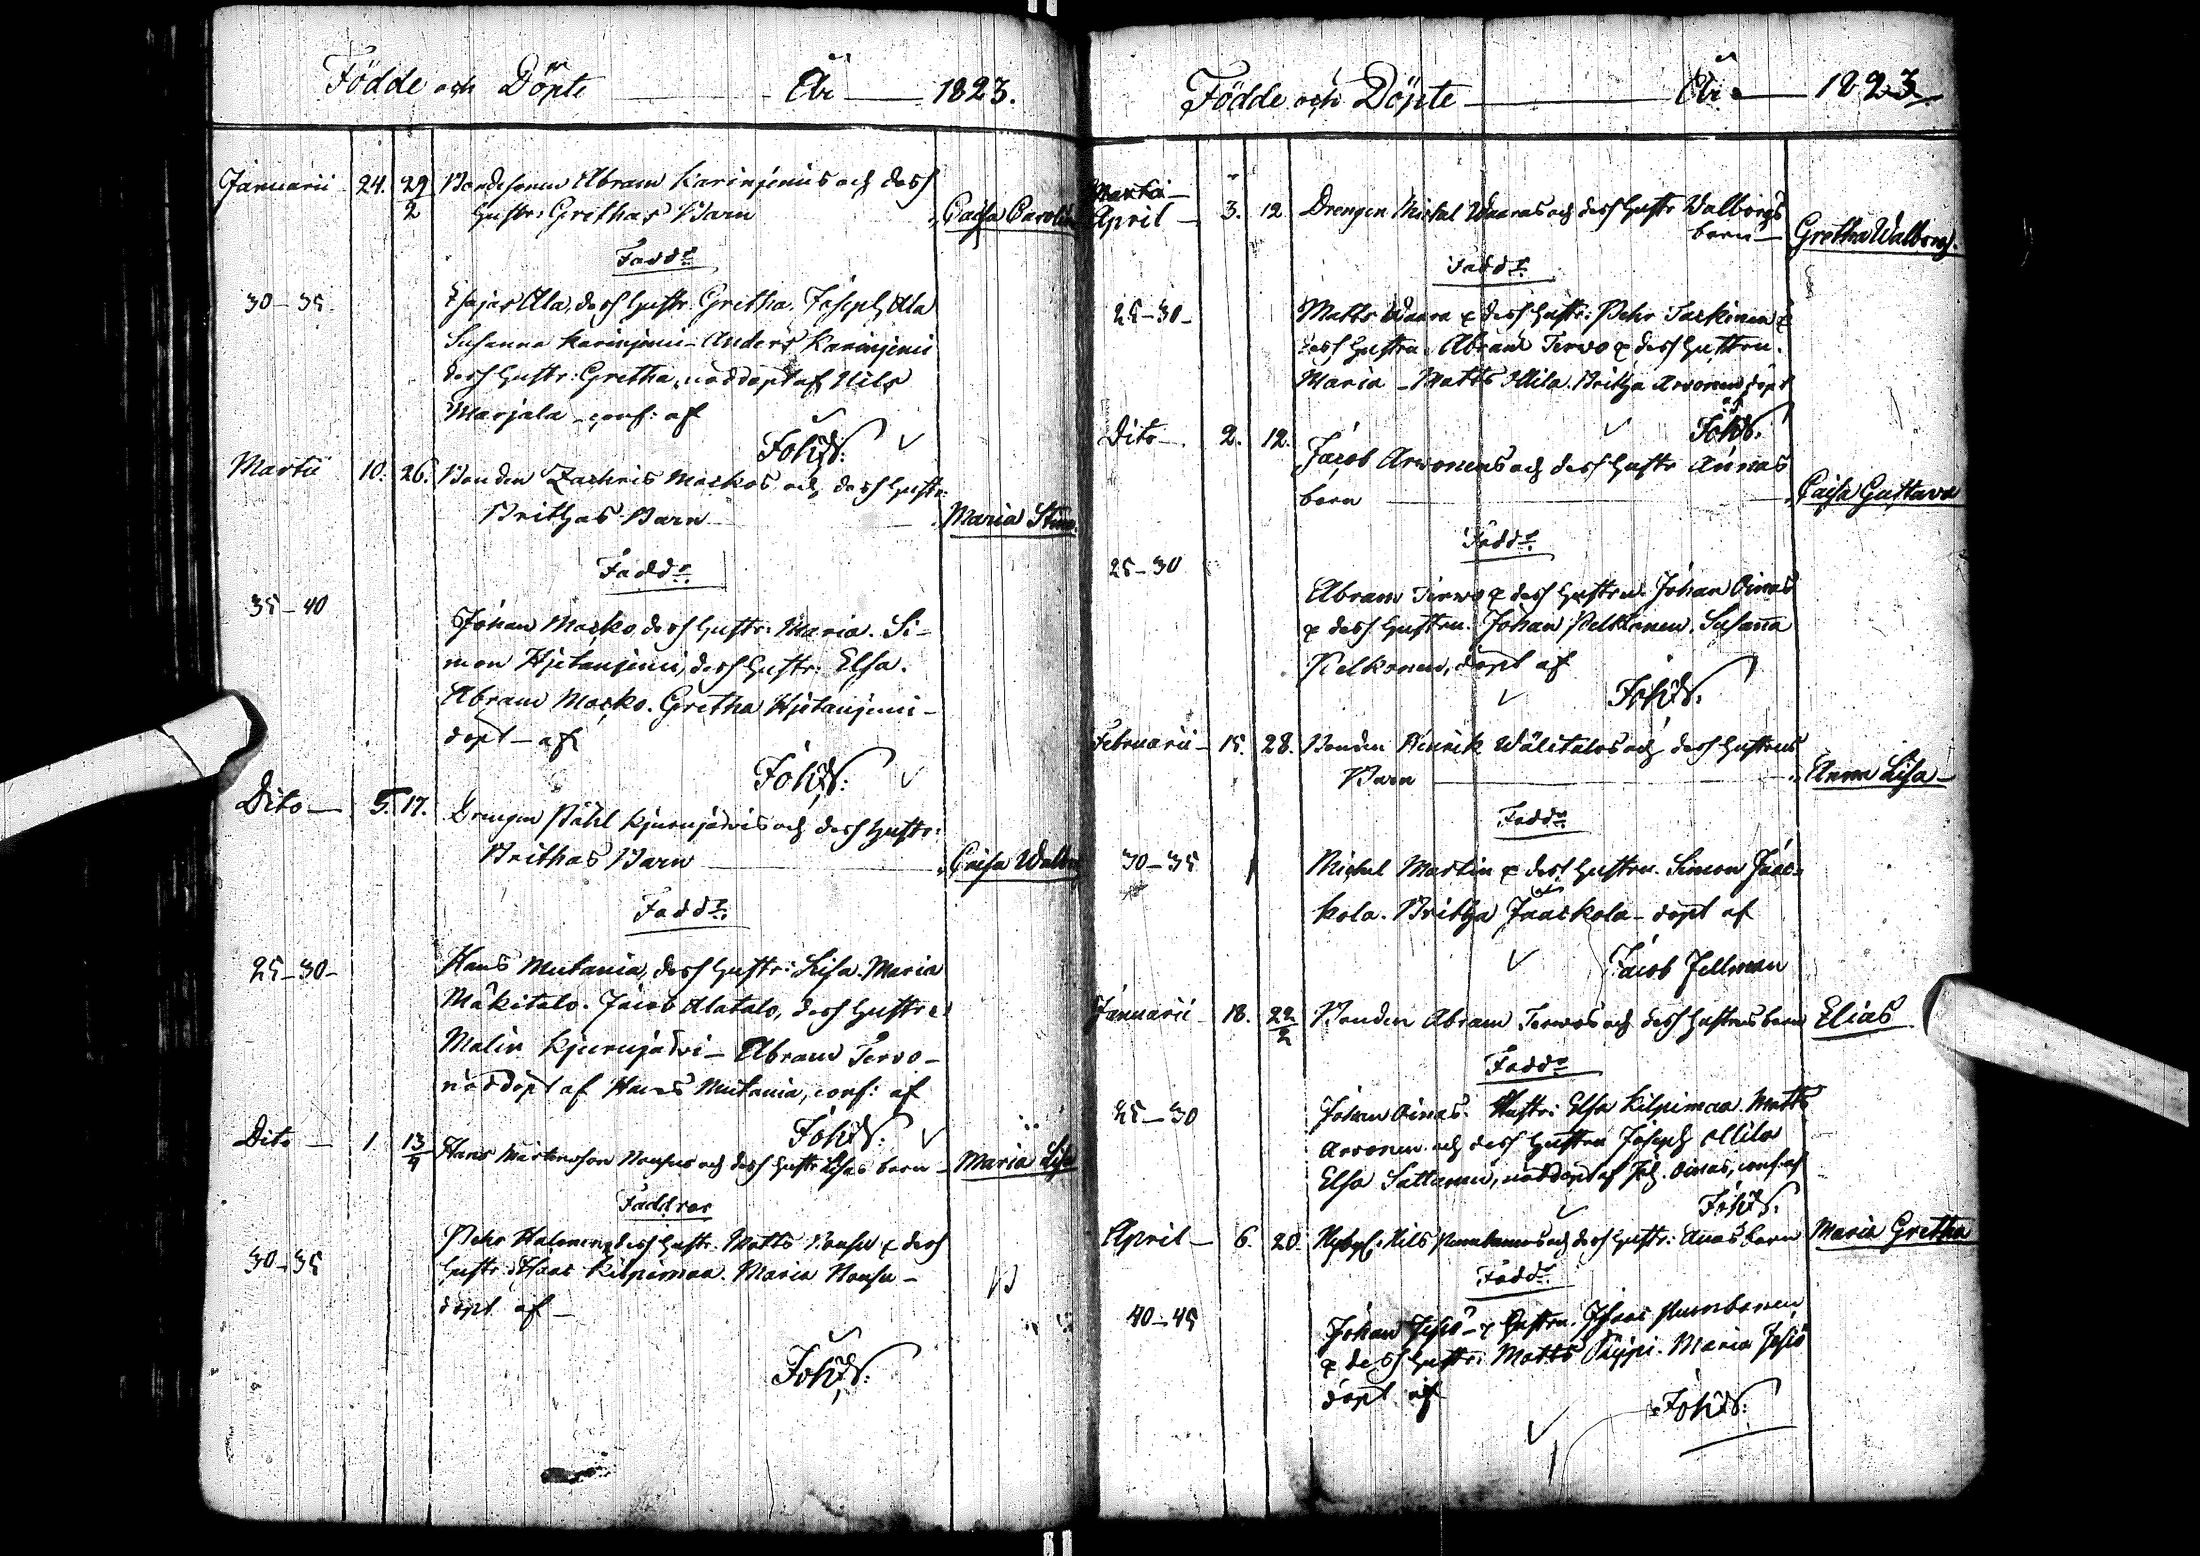 Födde och Döpte År 1823.
Januarii 24. 29/2 Bondesonen Abram Karinjenis och dess
Hustr: Grethas Barn Caisa Carolin
Fadd:r
30-35 Esajas Ala, dess Hustr. Gretha. Joseph Ala
Susanna Karinjemi - Anders Karinjemi
dess Hustr: Gretha, nöddöpt af Nils
Marjala - conf: af
Martii 10. 26. Bonden Zachris Markos och dess Hustr:
Brithas Barn Maria Stina
Fadd:r
35-40 Johan Marko, dess Hustr: Maria. Si-
mon Hjetanjemi, dess Hustr: Elsa.
Abram Marko. Gretha Hjetanjemi -
döpt - af
Dito - 5. 17. Drengen Påhl Kjerujärvis och dess Hustr:
Brithas Barn Caisa Walbr
Fadd:r
25-30- Hans Mutania, dess Hustr: Lisa. Maria
Mäkitalo. Jacob Alatalo, dess Hustr:
Malin Kjerujärvi - Abram Tervo -
nöddöpt af Hans Mutania, conf: af
Dito - 1. 13/4 Hans Mårtensson och dess Hustr Lisas barn - Maria Lisa
Faddrar
30-35 Pehr Halonen, dess Hustr. Matts & dess
Hustr: Isaac Kilpimaa. Maria
döpt af -
Födde och Döpte År 1823
Martii -
April - 3. 12. Drengen Michel Waaras och dess Hustr Walborgs
barn - Gretha Walborg.
Fadd:r
25-30- Matts Waara & dess Hustr: Pehr Taskinen &
dess Hustru. Abram Tervo & dess Hustru.
Maria - Matts Ollila. Britha Arvonen, döpt
af
Dito - 2. 12. Jacob Arvonens och dess Hustr Annas
barn Caisa Gustava
Fadd:r
25-30 Abram Tervo & dess Hustru. Johan Oinas
& dess Hustru. Johan Pelkonen. Susanna
Pelkonen, döpt af
Februarii - 15. 28. Bonden Henrik Wälitalos och dess Hustrus
Barn Anna Lisa -
Fadd:r
30-35 Michel Martin & dess Hustru. Simon Jaas-
kola. Britha Jaaskola - döpt af
Jacob Fellman
Januarii - 18. 22/2 Bonden Abram Tervos och dess Hustrus barn Elias
Fadd:r
25-30 Johan Oinas. Hustr: Elsa Kilpimaa. Matts
Arvonen och dess Hustru Joseph Ollila
Elsa Sattanen, nöddöpt af Joh. Oinas, conf: af
April - 6. 20. Nybygg: Nils och dess Hustr: Annas barn Maria Gretha
Fadd:r
40-45 Johan Jesiö - & Hustru. Isaac
& dess Hustr: Matts Seppi. Maria Jesiö
döpt af